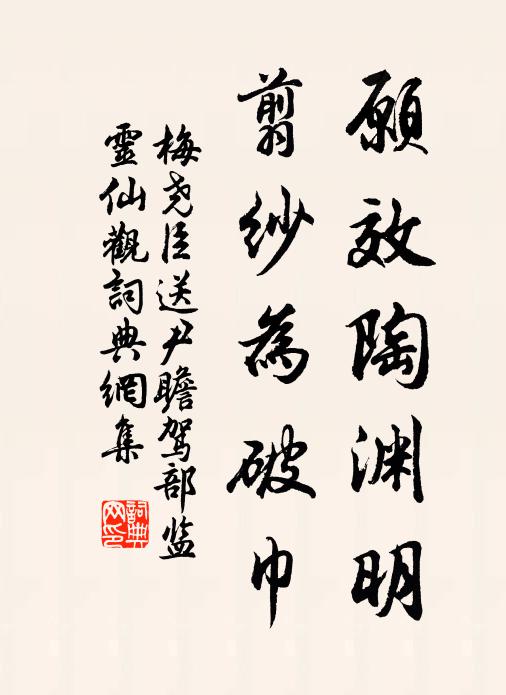 願效陶渊明
翦纱為破巾
梅尧臣送尹瞻駕部监
靈仙觀詞典網集
詞典
网印